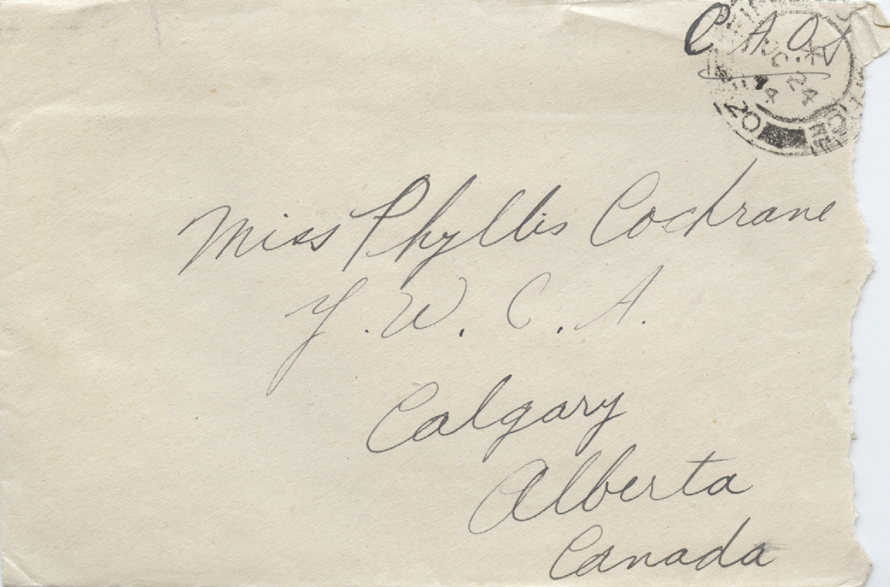 C.A.O.S.
Miss Phyllis Cochrane
Y.W.C.A.
Calgary
Alberta
Canada